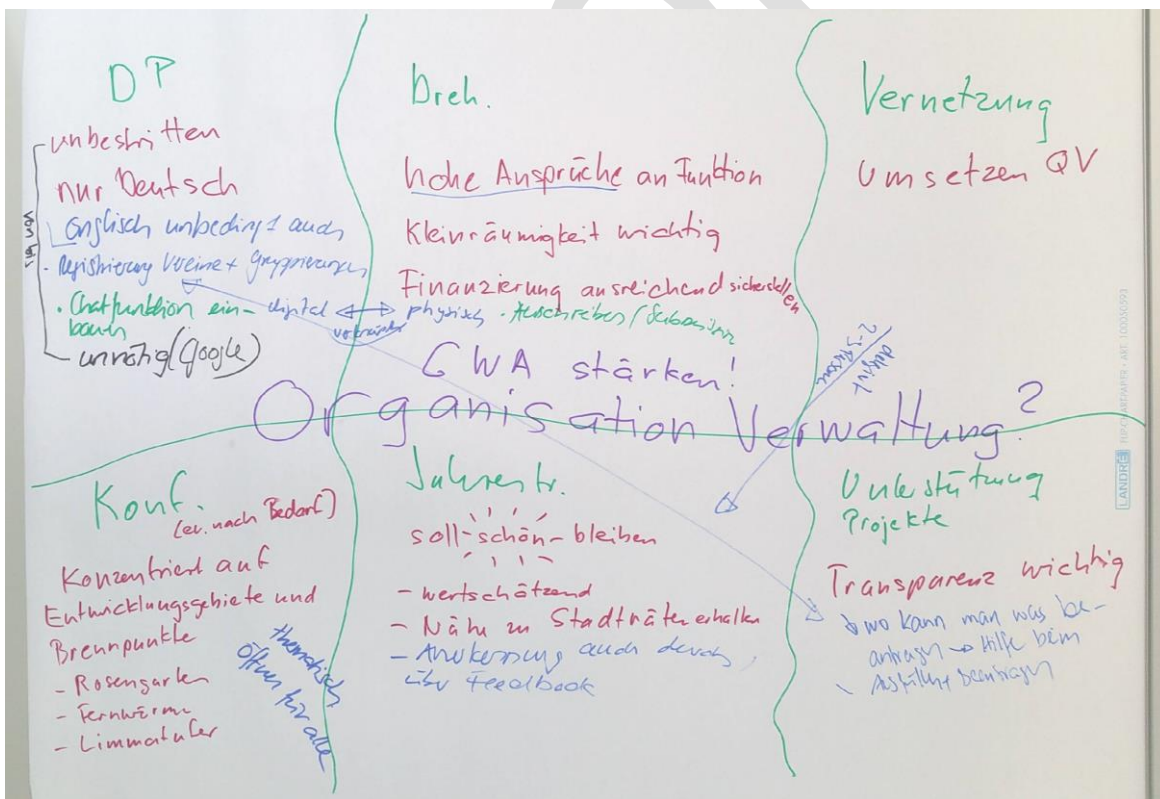 DP
unbestritten
nur Deutsch
Englisch unbedingt auch
· Registrierung Vereine + Gruppierungen
· Chatfunktion ein-
bauen
unnötig (Google)
Dreh.
hohe Ansprüche an Funktion
Kleinräumigkeit wichtig
Finanzierung ausreichend sicherstellen
digital ↔ physisch
· Ausschreiben /
Vernetzung
Umsetzen QV
GWA stärken!
Organisation Verwaltung?
Konf.
(ev. nach Bedarf)
Konzentriert auf
Entwicklungsgebiete und
Brennpunkte
- Rosengarten
- Fernwärme
- Limmatufer
thematisch
öffnen für alle
Jahrestr.
soll - schön - bleiben
- wertschätzend
- Nähe zu Stadträten erhalten
- Anerkennung auch durch,
über Feedback
Unterstützung
Projekte
Transparenz wichtig
wo kann man was be-
antragen → Hilfe beim
LANDRÉ FLIPCHARTPAPIER · ART. 100050593